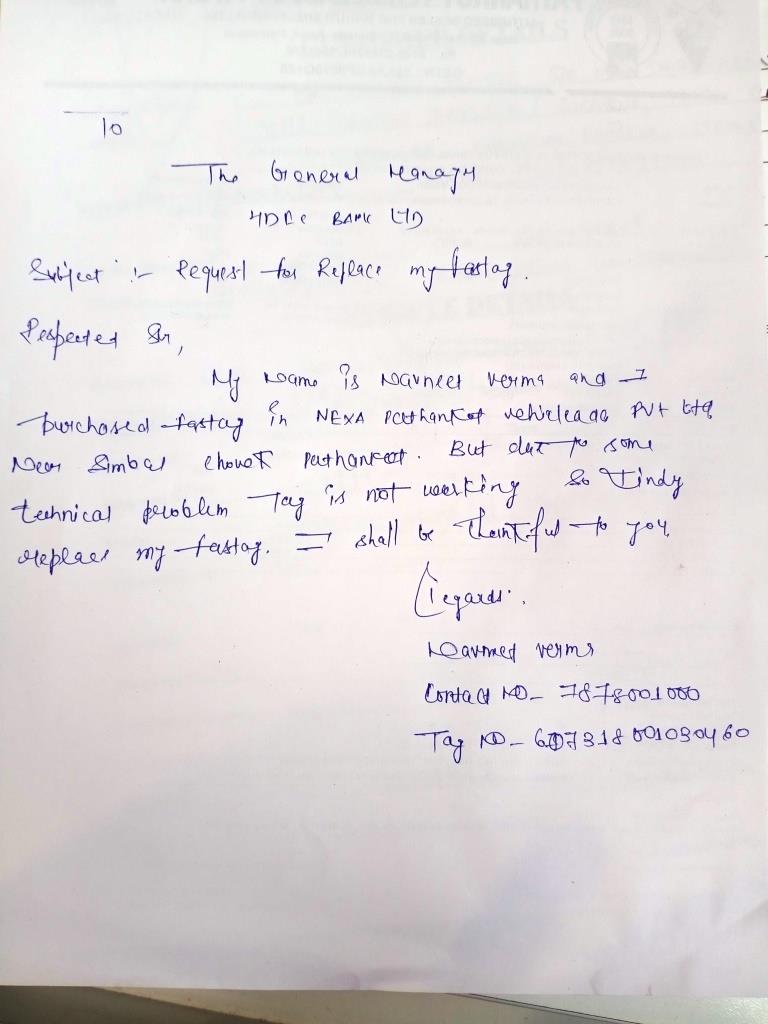 To
The General Manager
HDFC BANK LTD
Subject :- Request for Replace my fastag.
Respected Sir,
My Name is Navneet verma and I
purchased fastag in NEXA Pathankot vehicleade Pvt Ltd
Near Simbal chowk Pathankot. But due to some
technical problem Tag is not working So kindly
replace my fastag. I shall be thankful to you.
Regards.
Navneet verma
Contact NO- 7878001000
Tag NO- 607318001030460